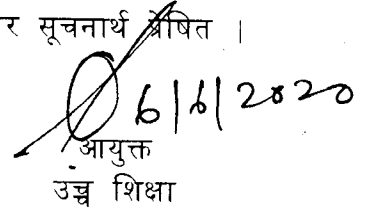 र सूचनार्थ प्रेषित ।
6/6/2020
आयुक्त
उच्च शिक्षा